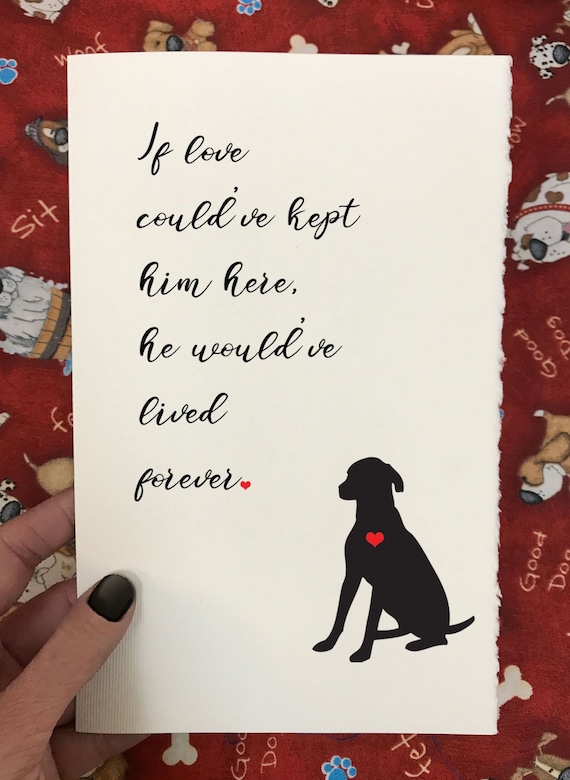 If love
could've kept
him here,
he would've
lived
forever
Woof
Good
Do
Sit
Good
Dog
Good
Dog
Good
Do
Fet
Good